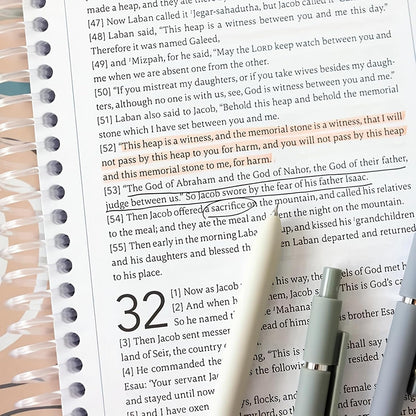 made a heap, and they ate there by the heap.
[47] Now Laban called it ¹Jegar-sahadutha, but Jacob called it
[48] Laban said, "This heap is a witness between you and me this day."
Therefore it was named Galeed,
[49] and ¹Mizpah, for he said, "May the LORD keep watch between you and
me when we are absent one from the other.
[50] "If you mistreat my daughters, or if you take wives besides my daugh-
ters, although no one is with us, see, God is witness between you and me."
[51] Laban also said to Jacob, "Behold this heap and behold the memorial
stone which I have set between you and me.
[52] "This heap is a witness, and the memorial stone is a witness, that I will
not pass by this heap to you for harm, and you will not pass by this heap
and this memorial stone to me, for harm.
[53] "The God of Abraham and the God of Nahor, the God of their father,
judge between us." So Jacob swore by the fear of his father Isaac.
[54] Then Jacob offered a sacrifice on the mountain, and called his relatives
to the meal; and they ate the meal and spent the night on the mountain.
[55] Then early in the morning Laban up, and kissed his ¹grandchildren
and his daughters and blessed Then Laban departed and returned
to his place.
32
[1] Now as Jacob his way, the angels of God met
[2] And when he them, Jacob This is God's
So he named ¹Mahana
[3] Then Jacob sent messen head of him his brother Esau
land of Seir, the country
[4] He commanded the ing, "This shall say
Esau: 'Your servant Jac resided
and stayed until now
[5] and I have oxen ys, flocks, and and
my lord, so favor